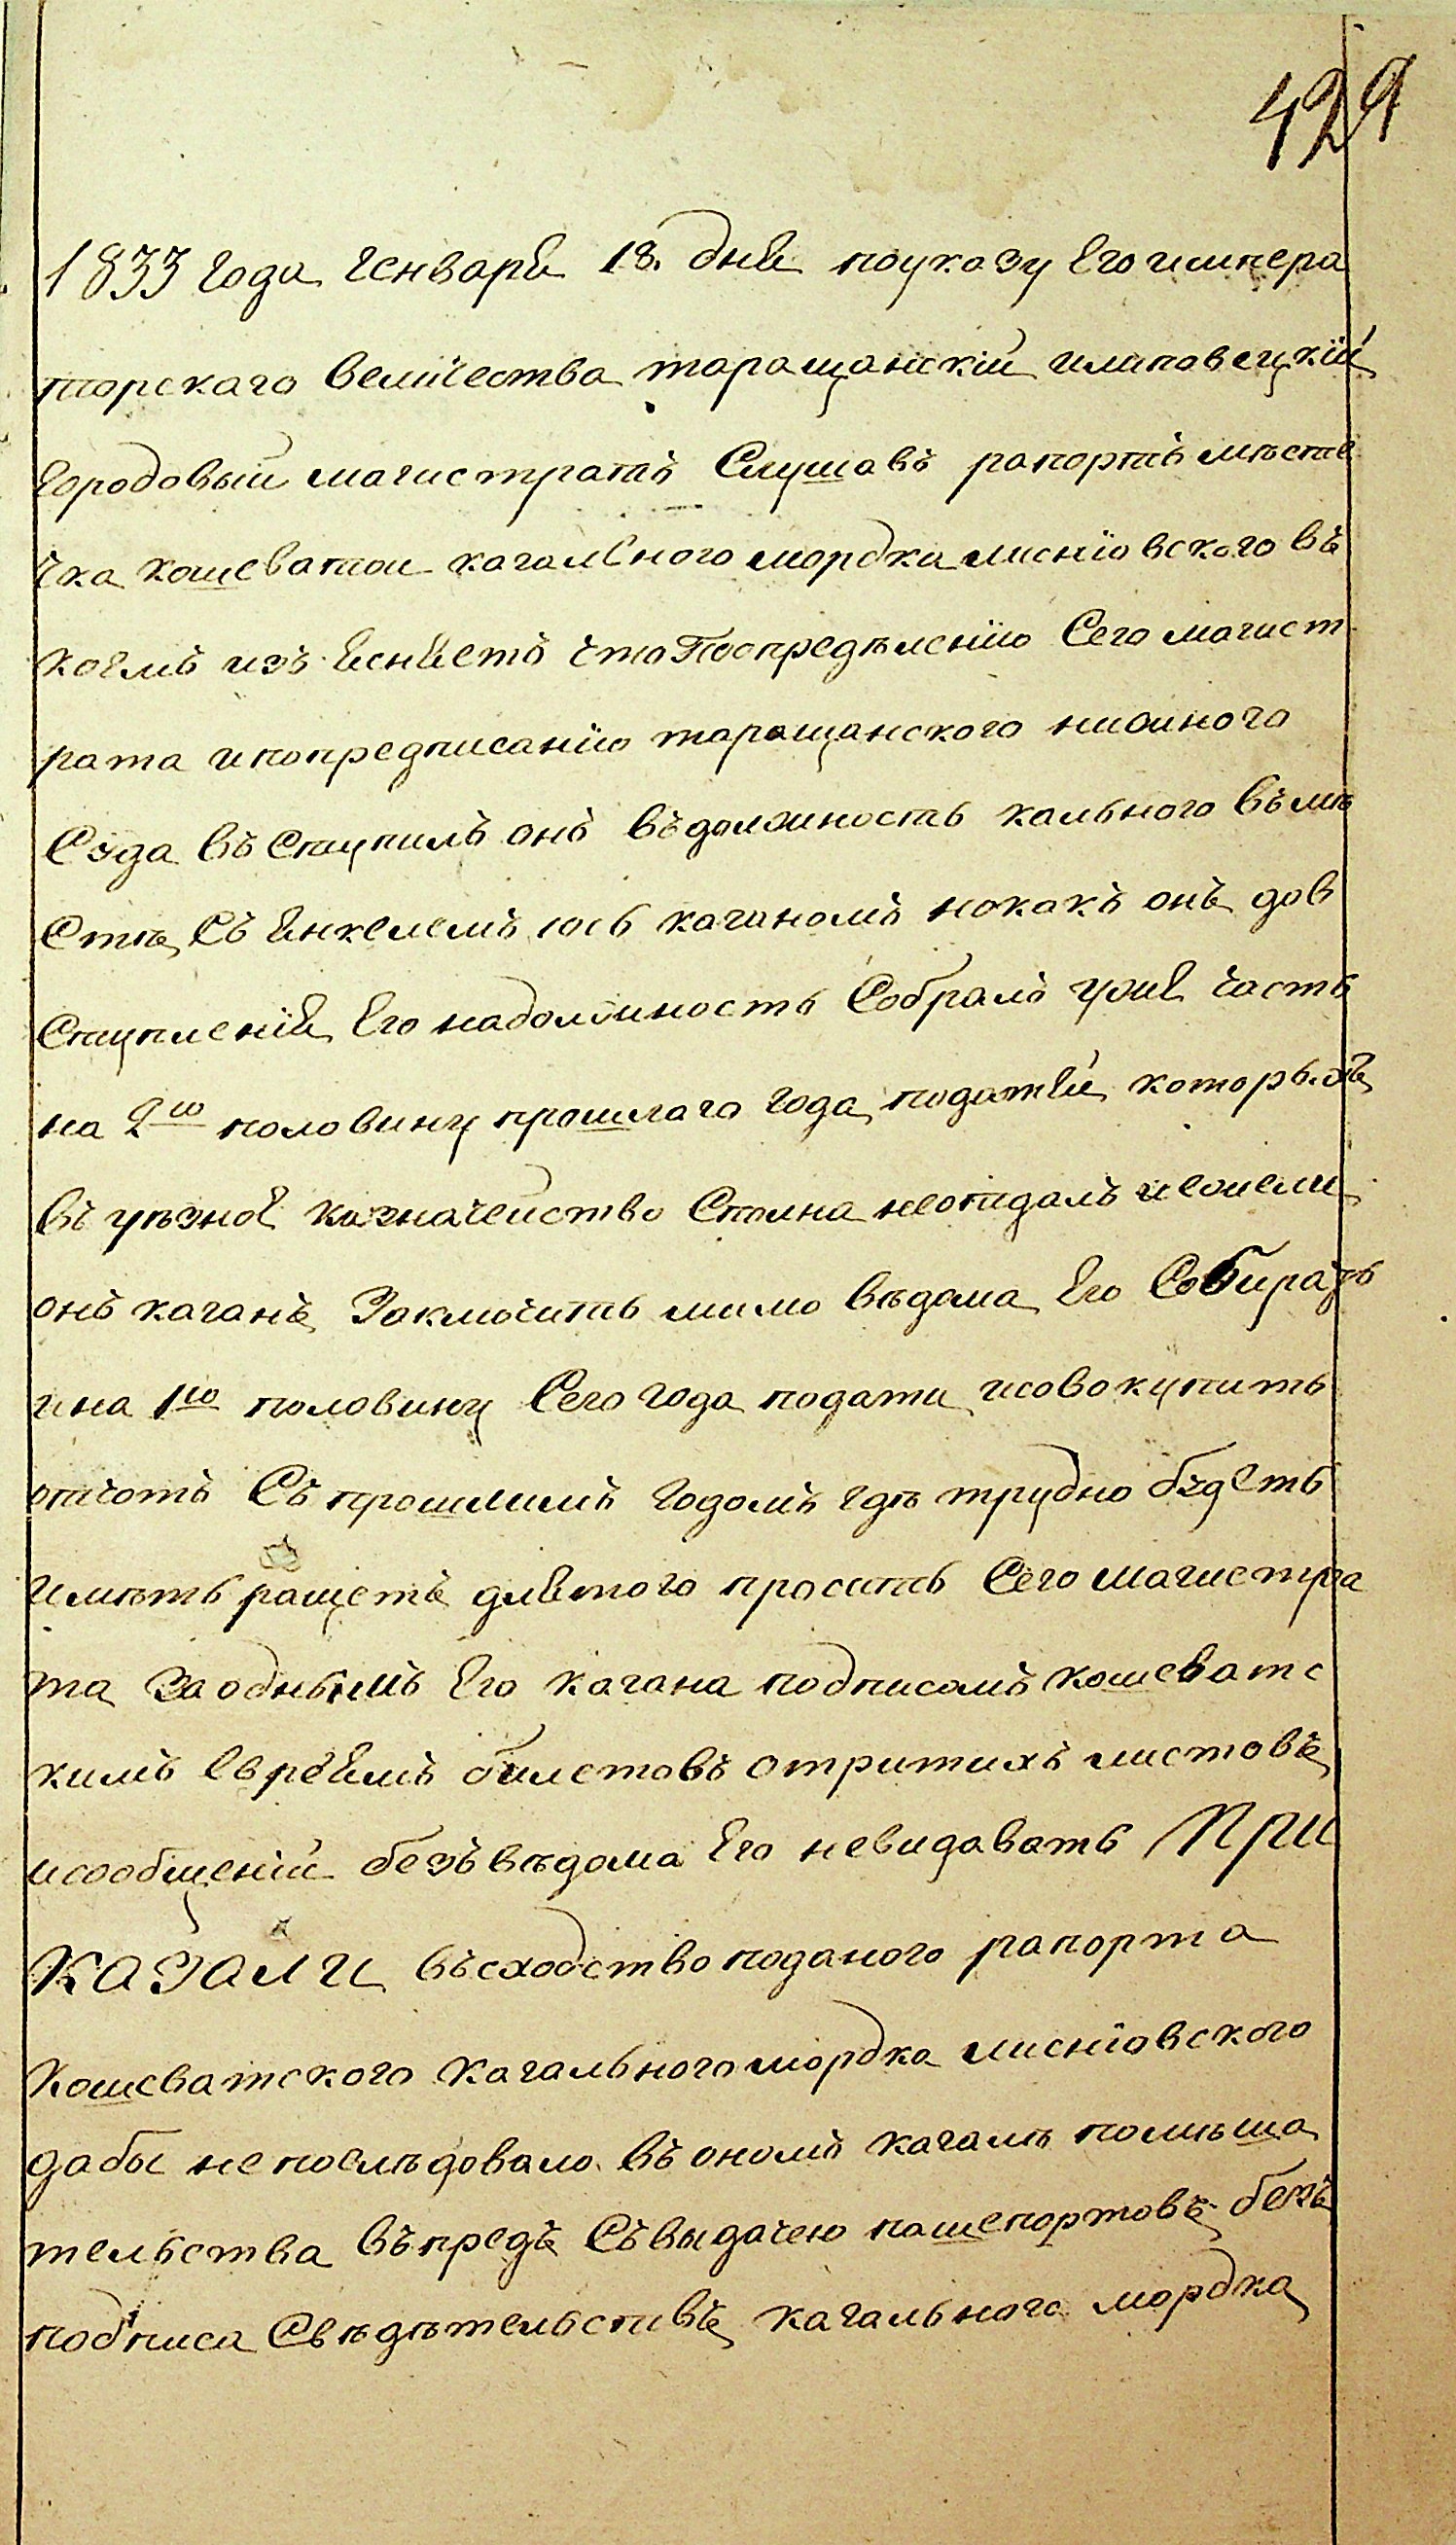 429
1833 года генваря 18. дня поуказу Его импера
торскаго величества таращанскій илиповецкій
городовый магистратъ Слушавъ рапортъ месте
чка кошеватои кагалного мордка лиснïовского въ
коемъ изъ ясняетъ что Поопределенïю Сего магист
рата ипопредписанïю таращанского нижного
Суда въ Ступилъ онъ въдолжность кального въмѣ
Сте, Съ Янкелемъ юсь каганомъ нокакъ онъ дов
Ступленïя Его надолжность Собралъ уже часть
на 2ю половину прошлаго года податей которыхъ
въ уѣзное казначейство Сполна неотдалъ иежели
онъ каганъ Заключить мимо вѣдома Его Собирать
ина 1ю половину Сего года подати исовокупить
отчотъ Съ прошлимъ годомъ где трудно будеть
имѣть ращетъ длятого просить Сего магистра
та Заоднымъ Его кагана подписомъ кошеватс
кимъ евреямъ билетовъ отритихъ листовъ
исообщеній безъ вѣдома Его невидавать При
казали въсходство поданого рапорта
Кошеватского кагального мордка лиснïовского
дабы непослѣдовало въ ономъ кагалѣ помѣша
тельства въпредъ Съвыдачею пашепортовъ безъ
подписа Свѣдѣтельствъ кагального мордка